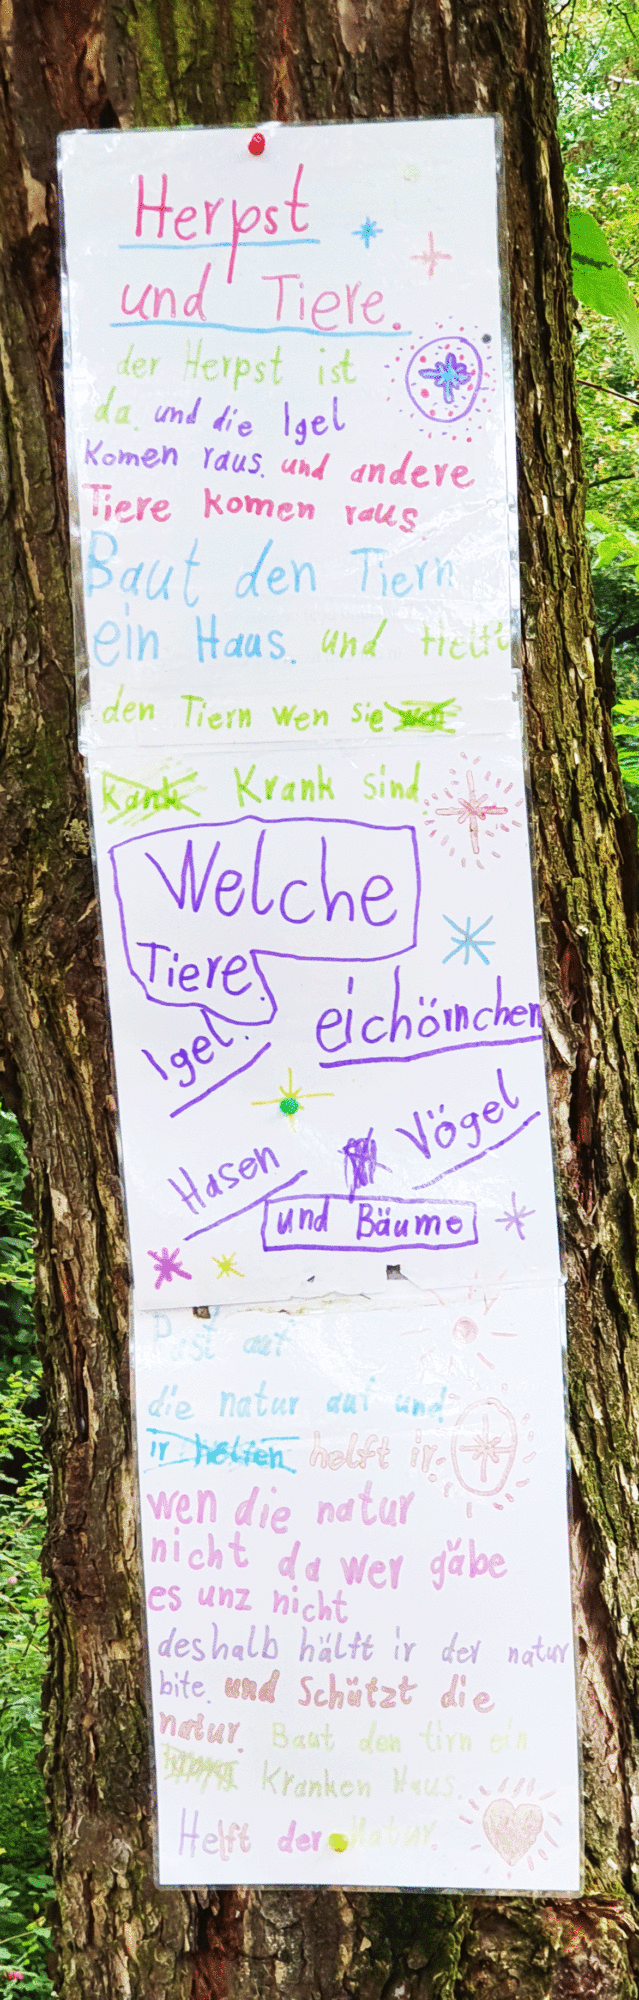 Herpst
und Tiere.
der Herpst ist
da. und die Igel
komen raus. und andere
Tiere komen raus.
Baut den Tiern
ein Haus. und Helft
den Tiern wen sie
Krank sind
Welche
Tiere.
Igel.
eichörnchen
Hasen
Vögel
und Bäume
Past auf
die natur auf und
ir helfen helft ir.
wen die natur
nicht da wer gäbe
es unz nicht
deshalb hälft ir der natur
bite. und Schützt die
natur. Baut den tirn ein
Kranken Haus.
Helft der Natur.